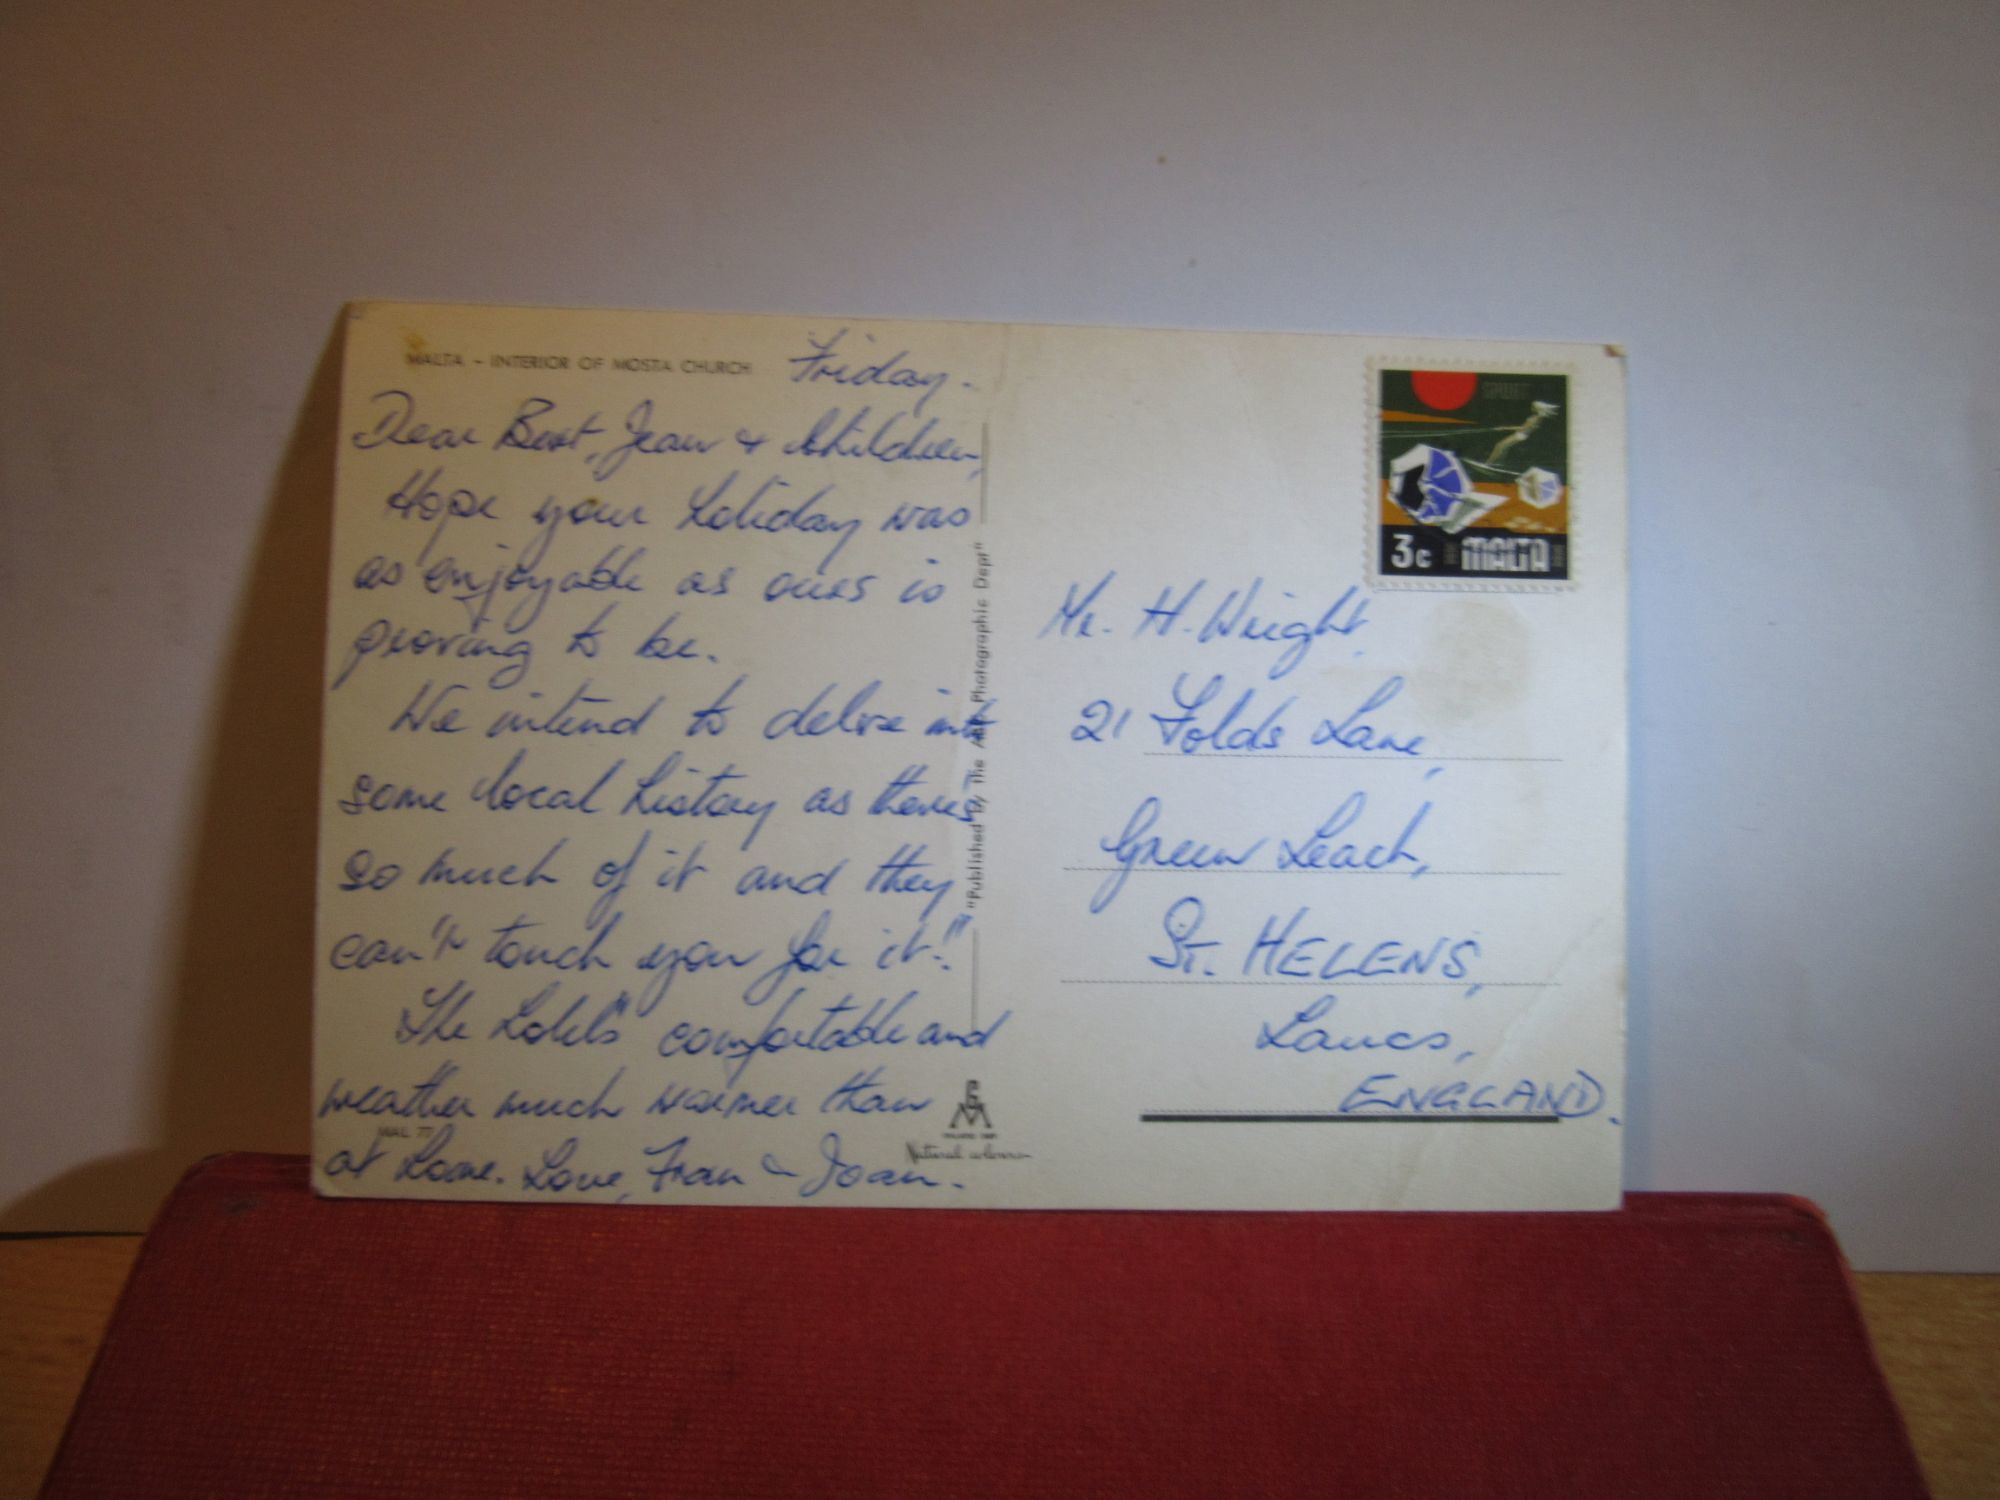 MALTA - INTERIOR OF MOSTA CHURCH
Friday.
Dear Bert, Jean & Children,
Hope your holiday was
as enjoyable as ours is
proving to be.
We intend to delve into
some local history as there's
so much of it and they
can't touch you for it!"
The hotel's comfortable and
weather much warmer than
at home. Love, Fran & Joan.
MAL 77
"Published by The ABC Photographic Dept"
Natural colours
SPORT
3c MALTA
Mr. H. Wright.
21 Folds Lane,
Green Leach,
ST. HELENS,
Lancs,
ENGLAND.